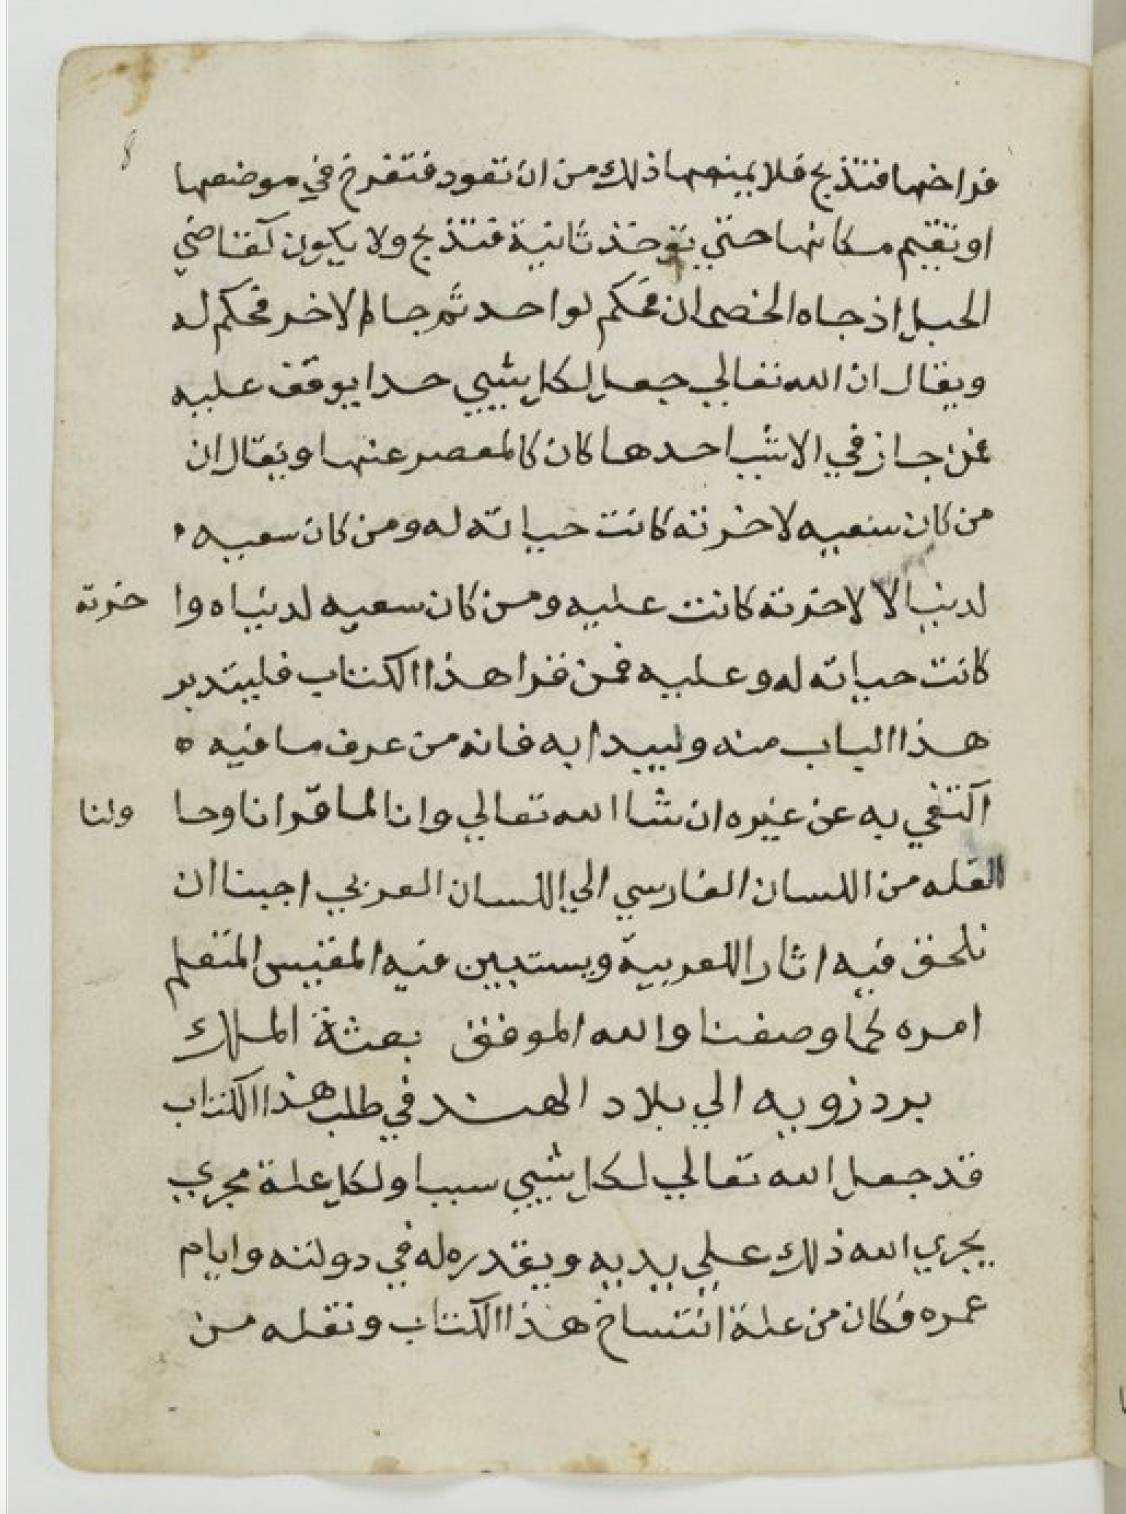 8
فراخها فتذبح فلا يمنعها ذلك من ان تعود فتفرخ في موضعها
او تقيم مكانها حتي توخذ ثانية فتذبح ولا يكون كقاضي
الجبل اذ جاه الخصم ان فحكم لواحد ثم جا الاخر فحكم له
ويقال ان الله تعالي جعل لكل شيي حدا يوقف عليه
فمن جاز في الاشيا حدها كان كالمقصر عنها ويقال ان
من كان سعيه لاخرته كانت حياته له ومن كان سعيه
لدنيا لا لاخرته كانت عليه ومن كان سعيه لدنياه وا خرته
كانت حياته له وعليه فمن قرا هذا الكتاب فليتدبر
هذا الباب منه وليبدا به فانه من عرف ما فيه ه
اكتفي به عن غيره ان شا الله تعالي وانا لما قرانا وحا ولنا
القله من اللسان الفارسي الي اللسان العربي اجبنا ان
نلحق فيه اثار العربية ويستبين فيه المقتبس المتعلم
امره كما وصفنا والله الموفق بعثة الملك
برذزويه الي بلاد الهند في طلب هذا الكتاب
قد جعل الله تعالي لكل شيي سببا ولكل علة مجري
يجري الله ذلك علي يديه ويقدره له في دولته وايام
عمره فكان من علة انتساخ هذا الكتاب ونقله من